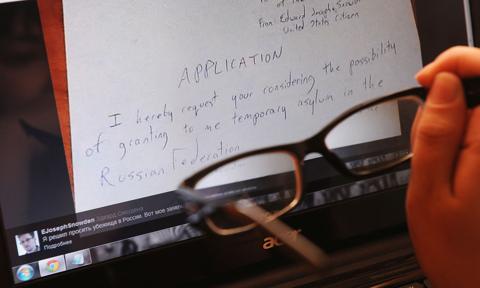 From Edward Joseph Snowden
United States citizen
APPLICATION
I hereby request your considering the possibility
of granting to me temporary asylum in the
Russian Federation
EJosephSnowden Эдвард Сноуден
Я решил просить убежища в России. Вот мое
Подробнее
acer